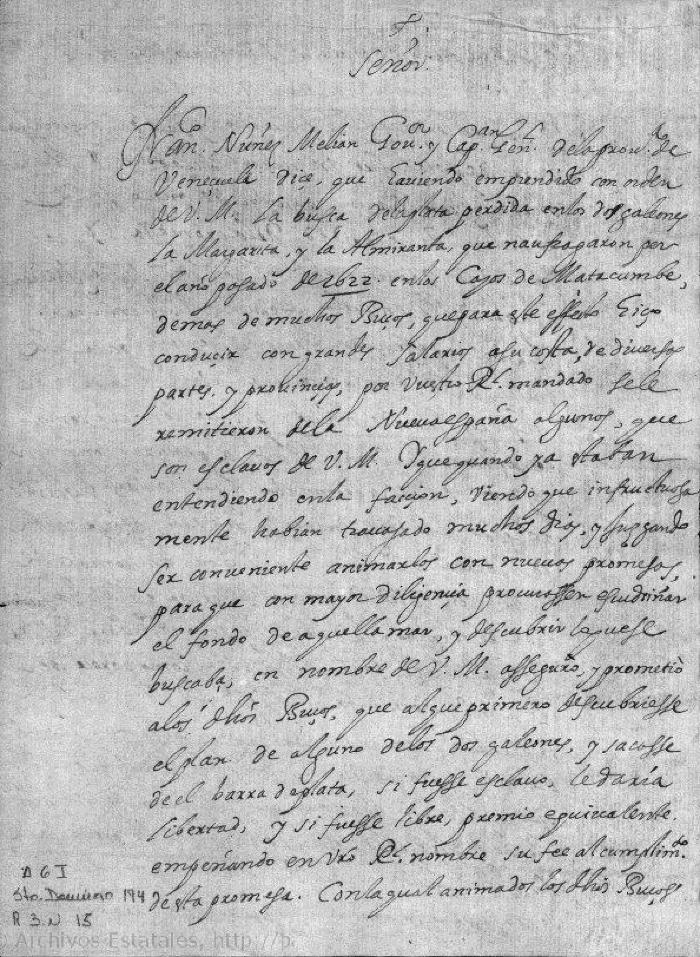 †
Señor.
Fran.co Núñez Melian Gov.or y Cap.an Gen.l dela prov.a de
Veneçuela dice, que haviendo emprendido con orden
de V. M. la busca dela plata perdida en los dos galeones
la Margarita, y la Almiranta, que naufragaron por
el año pasado de 1622. en los Cayos de Matacumbe,
demas de muchos Buços, que para este effecto hiço
conducir con grandes salarios a su costa, de diversas
partes, y provincias, por vuestro R.l mandado se le
remitieron dela Nueva españa algunos, que
son esclavos de V. M. Y que quando ya estaban
entendiendo en la faccion, viendo que infructuosa
mente habian travajado muchos dias, y juzgando
ser conveniente animarlos con nuevas promesas,
para que con mayor diligencia procurassen escudriñar
el fondo de aquella mar, y descubrir lo que se
buscaba, en nombre de V. M. asseguró, y prometió
a los dhos Buços, que al que primero descubriesse
el plan de alguno de los dos galeones, y sacasse
de el barra de plata, si fuesse esclavo, le daría
libertad, y si fuesse libre, premio equivalente.
empeñando en Vro R.l nombre su fee al cumplim.to
de esta promesa. Con la qual animados los dhos Buços
A G I
Sto. Domingo 194
R 3. N 15
© Archivos Estatales, http://p